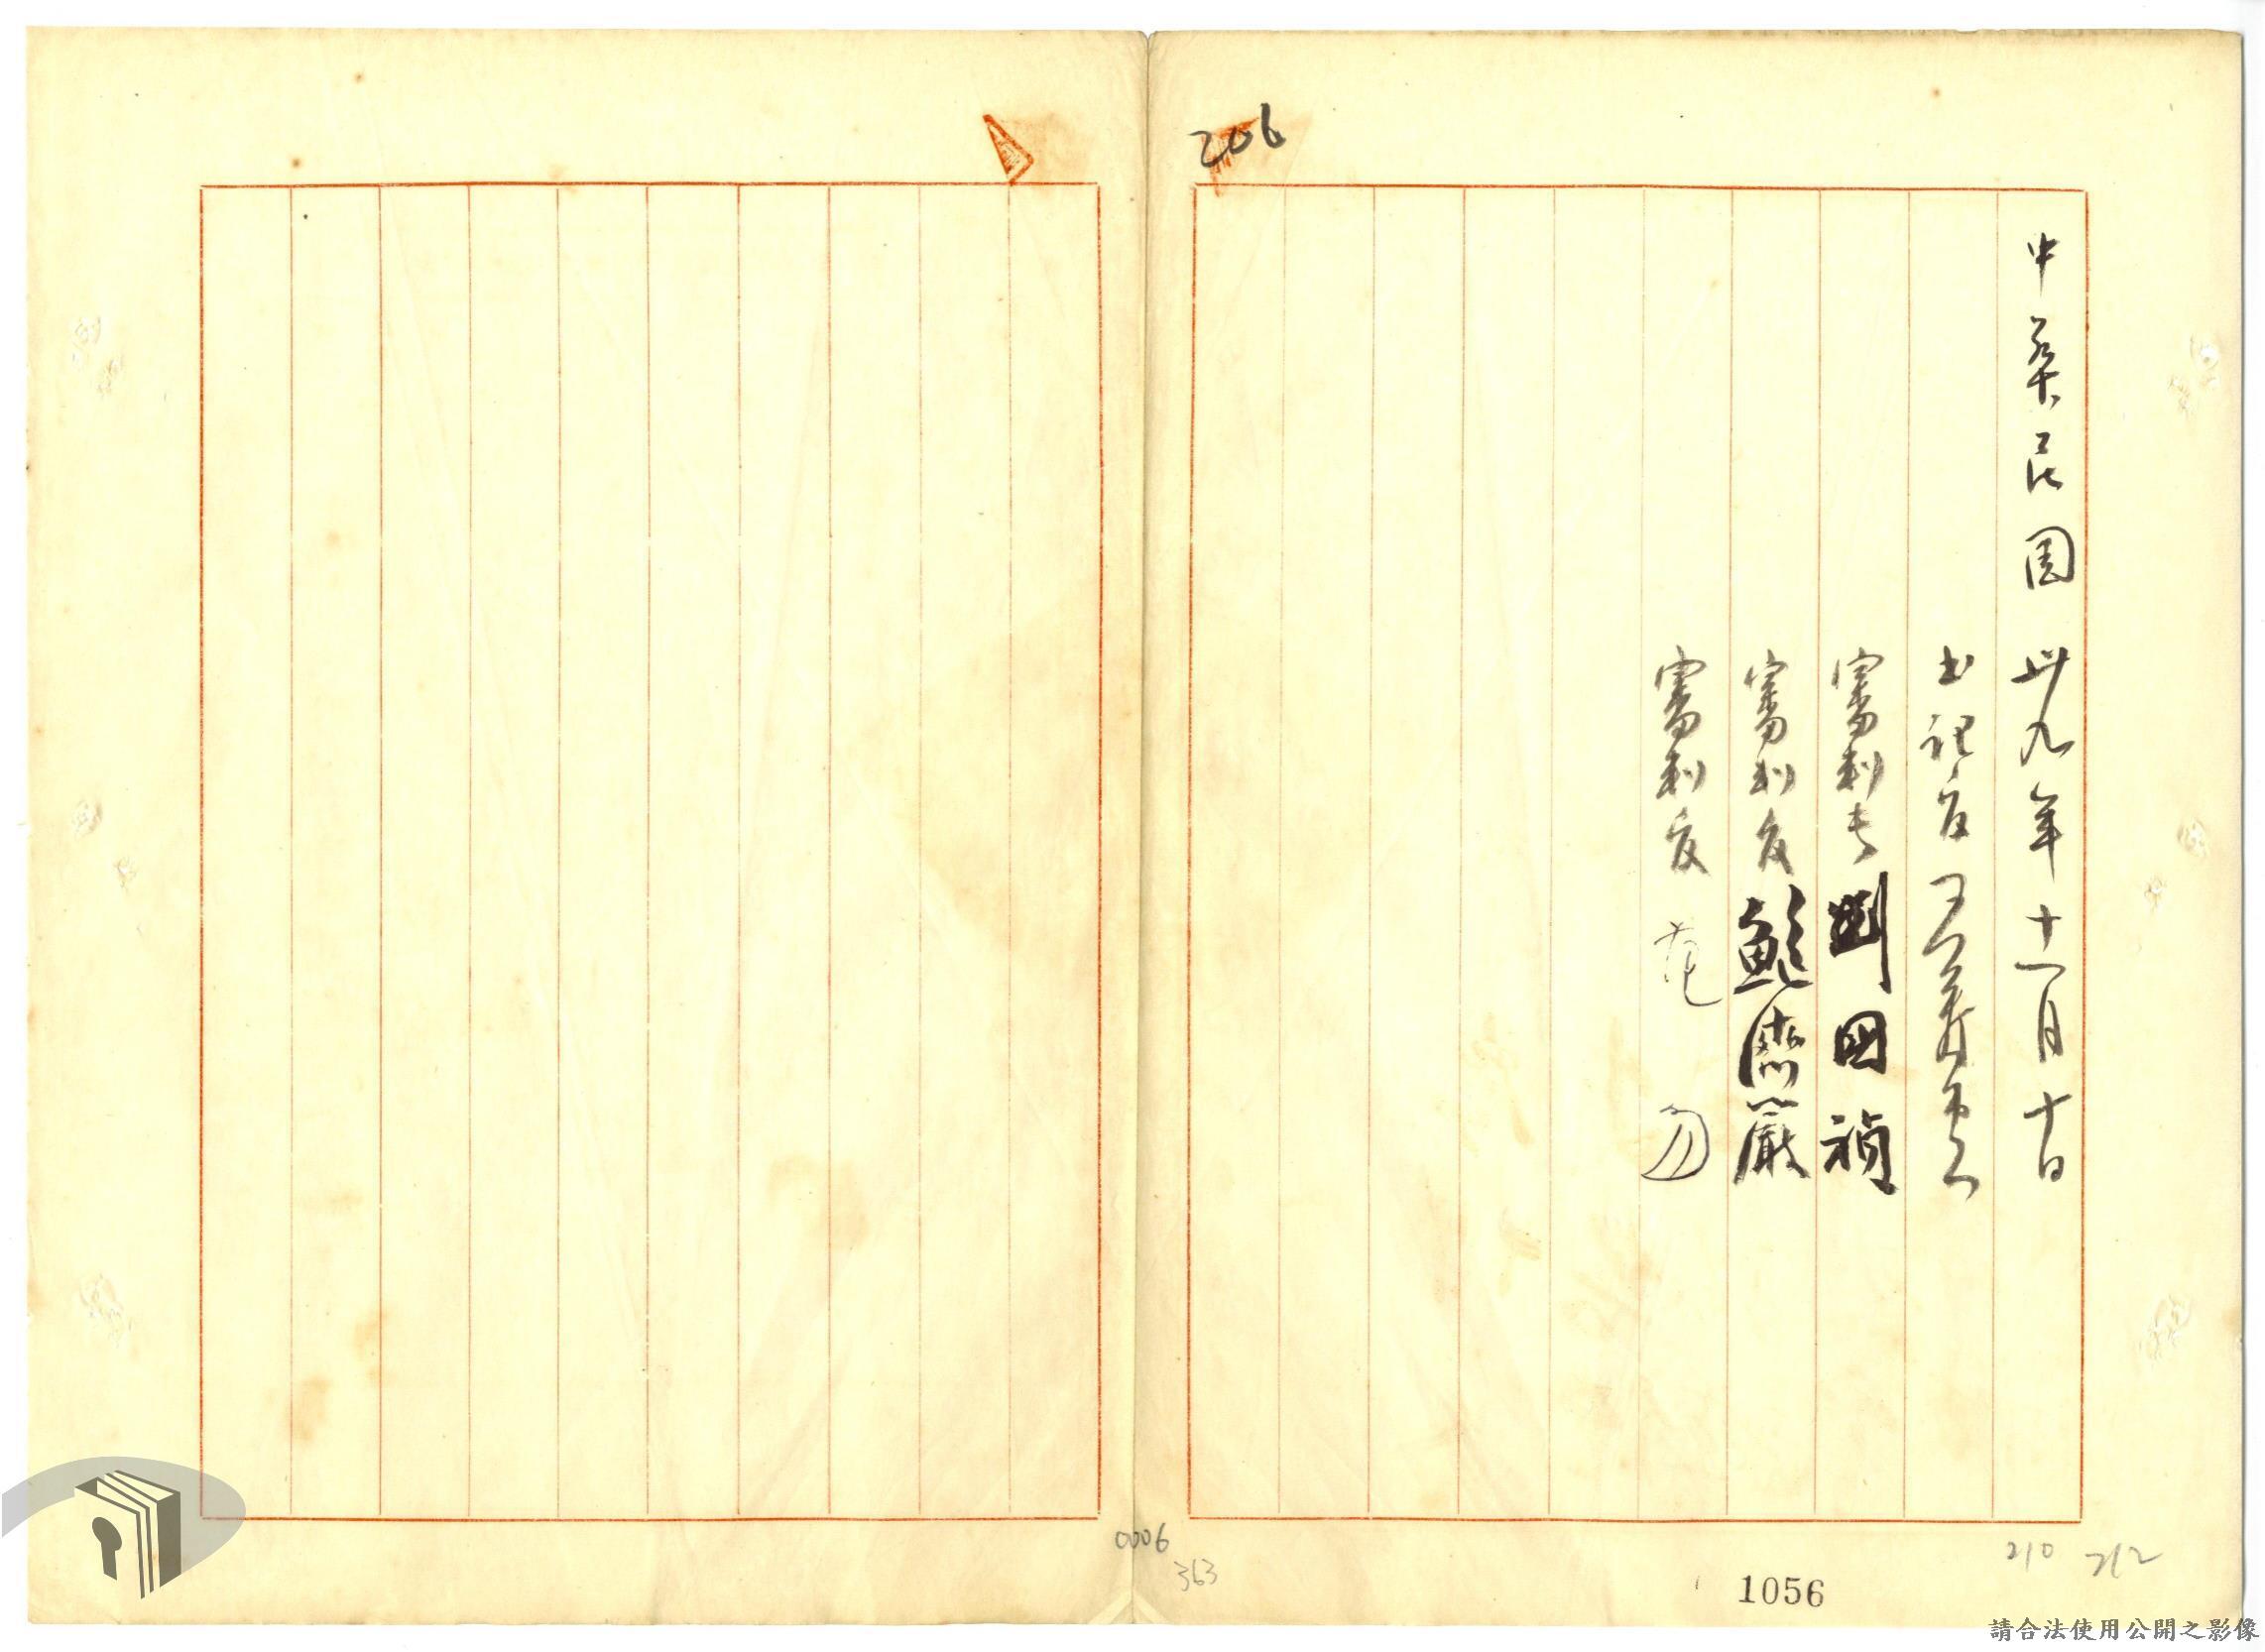 206
中華民國卅九年十一月十日
書記官
審判長 劉國禎
審判官 鮑濟嚴
審判官 范勿
0006
363
210
212
1056
請合法使用公開之影像